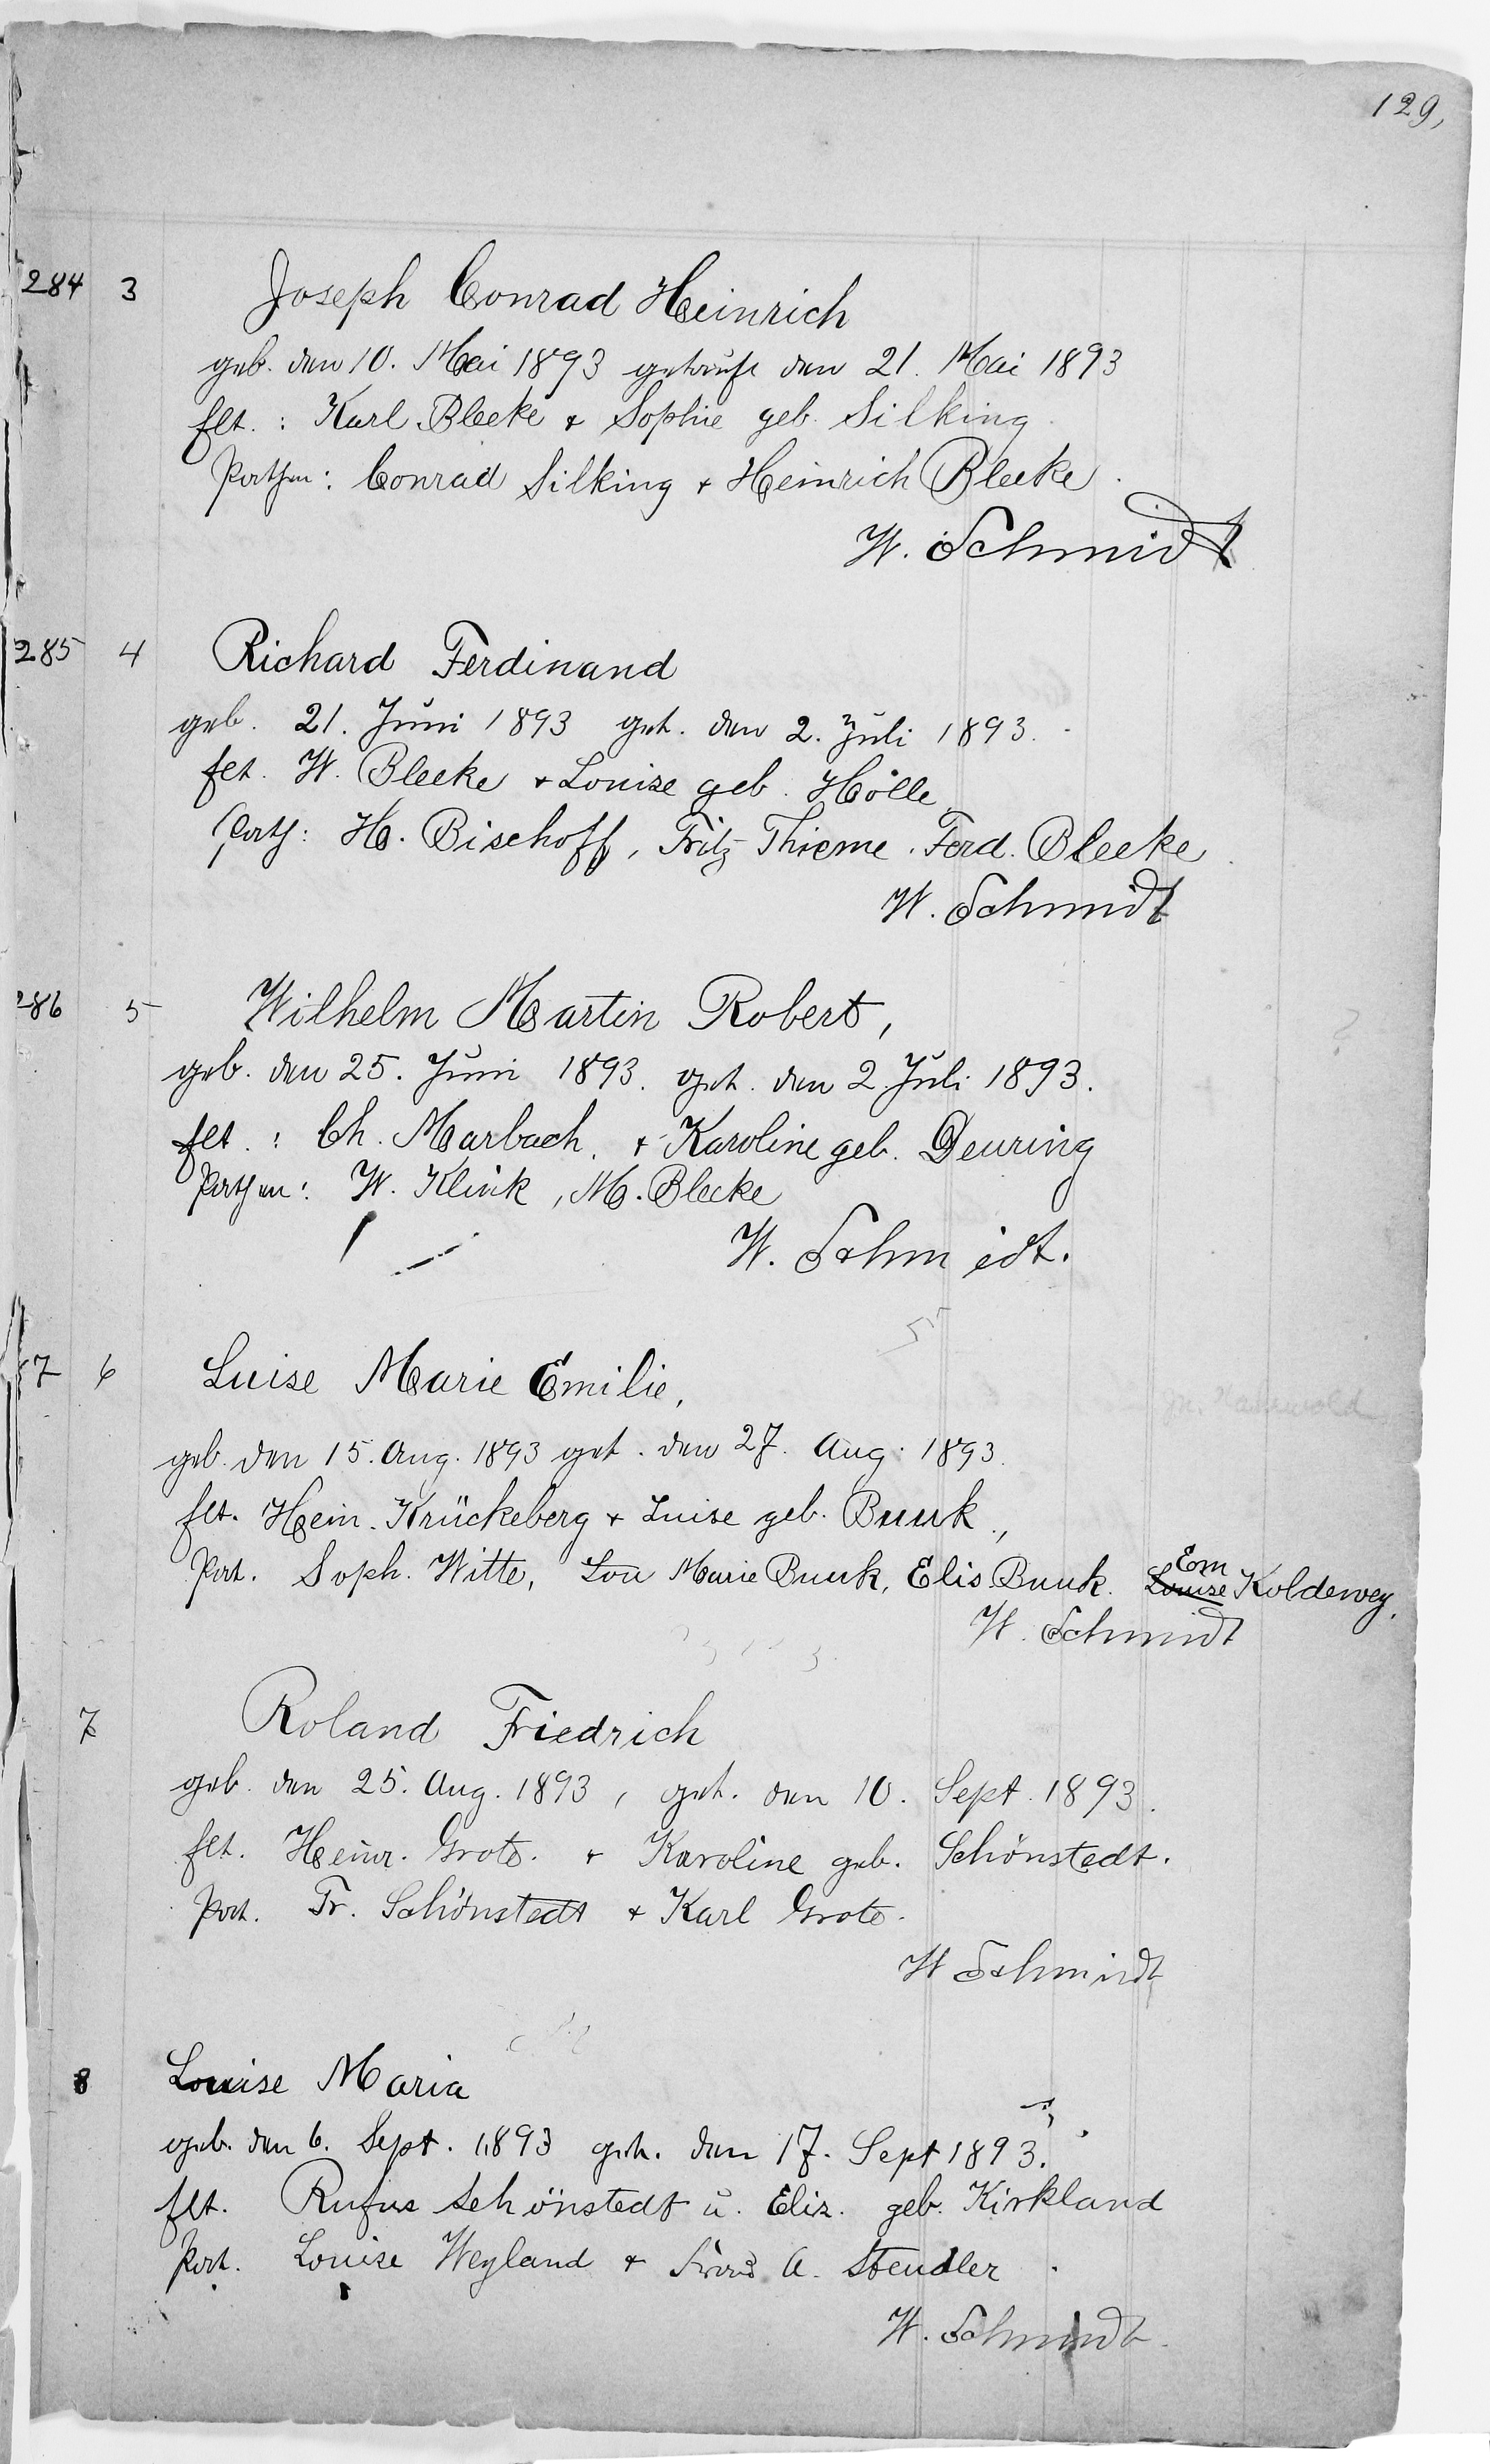 129,
284 3 Joseph Conrad Heinrich
geb. den 10. Mai 1893 getauft den 21. Mai 1893
Elt. : Karl Bleeke + Sophie geb. Silking.
Pathen: Conrad Silking + Heinrich Bleeke.
W. Schmidt
285 4 Richard Ferdinand
geb. 21. Juni 1893 get. den 2. Juli 1893.
Elt. W. Bleeke + Louise geb. Hölle
Path: H. Bischoff, Fritz Thieme. Ferd. Bleeke
W. Schmidt
286 5 Wilhelm Martin Robert,
geb. den 25. Juni 1893. get. den 2. Juli 1893.
Elt. : Ch. Marbach. + Karoline geb. Deuring
Pathen: W. Klink, M. Bleeke
W. Schmidt.
7 6 Luise Marie Emilie,
geb. den 15. Aug. 1893 get. den 27. Aug. 1893.
Elt. Hein. Krückeberg + Luise geb. Buuk.,
Pat. Soph. Witte, Lou Marie Buuk, Elis. Buuk. Louise Em Koldewey.
W. Schmidt
7 Roland Friedrich
geb. den 25. Aug. 1893, get. den 10. Sept. 1893.
Elt. Heinr. Grote. + Karoline geb. Schönstedt.
Pat. Fr. Schönstedt + Karl Grote.
W Schmidt
8 Louise Maria
geb. den 6. Sept. 1893 get. den 17. Sept 1893.
Elt. Rufus Schönstedt u. Eliz. geb. Kirkland
Pat. Louise Weyland + A. Stendler.
W. Schmidt.